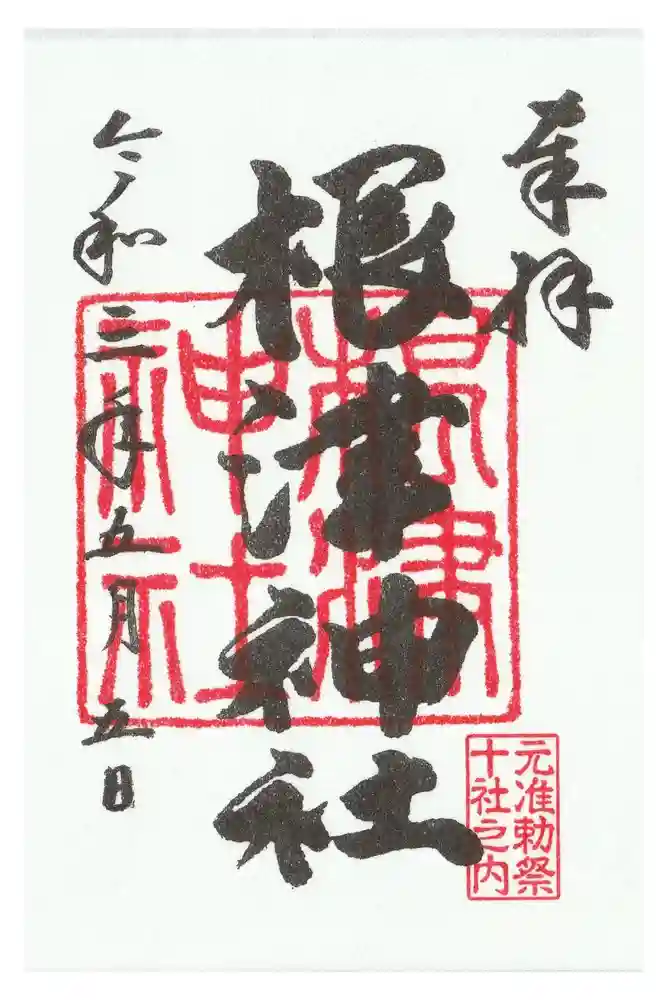 奉拝
根津神社
根津
神社
元准勅祭
十社之内
令和三年五月五日